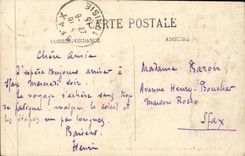 CARTE POSTALE
CORRESPONDANCE
ADRESSE
SFAX
TUNISIE
Chère Amie
J'espère toujours arriver à
Sfax Mercredi soir
le voyage s'achève sans trop
de fatigue, malgré le soleil et
les étapes un peu longues.
Baisers
Henri
Madame Baron
Avenue Henry-Boucher
Maison Rocca
Sfax